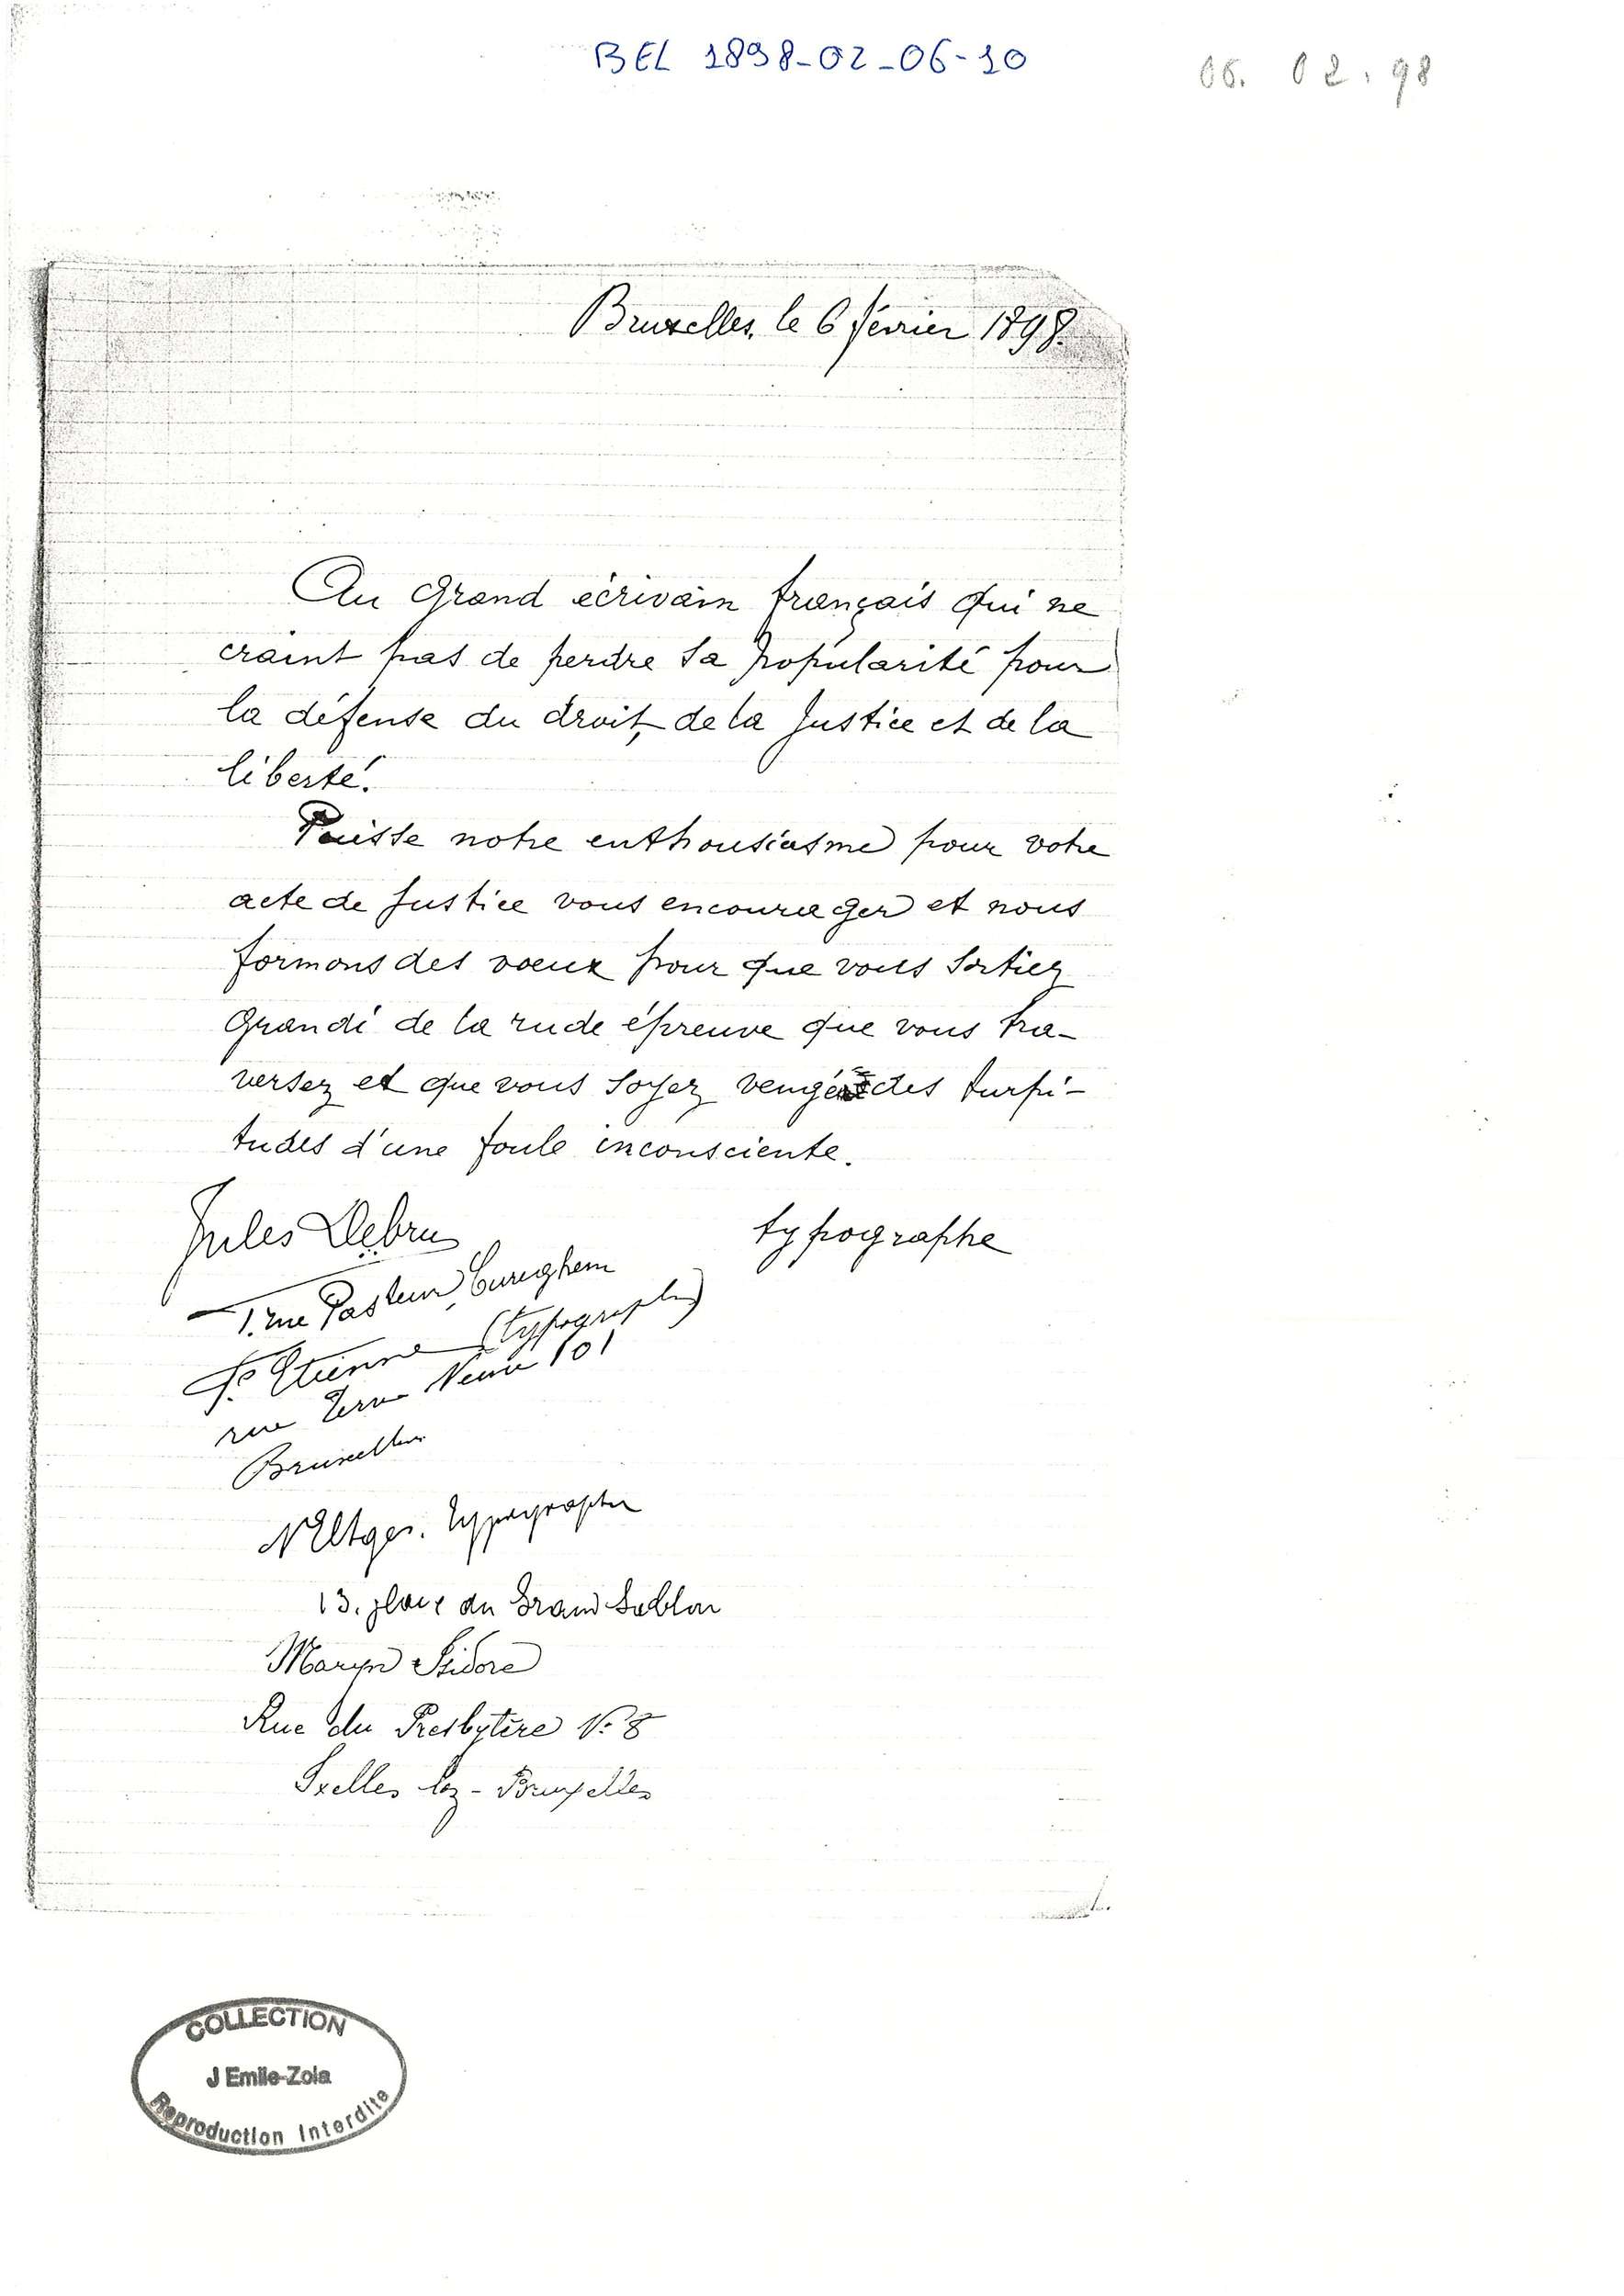 BEL 1898-02-06-10
06. 02. 98
Bruxelles, le 6 février 1898.
Au Grand écrivain français qui ne
craint pas de perdre sa popularité pour
la défense du droit, de la Justice et de la
liberté.
Puisse notre enthousiasme pour votre
acte de Justice vous encourager et nous
formons des voeux pour que vous sortiez
Grandi de la rude épreuve que vous tra-
versez et que vous soyez vengé des turpi-
tudes d'une foule inconsciente.
Jules Debru typographe
1. rue Pasteur, Cureghem
Etienne (typographe)
rue Terre Neuve 101
Bruxelles
N Eltger. typographe
13. place du Grand Sablon
Maryn Isidore
Rue du Presbytère N° 8
Ixelles lez-Bruxelles
COLLECTION
J Emile-Zola
Reproduction Interdite